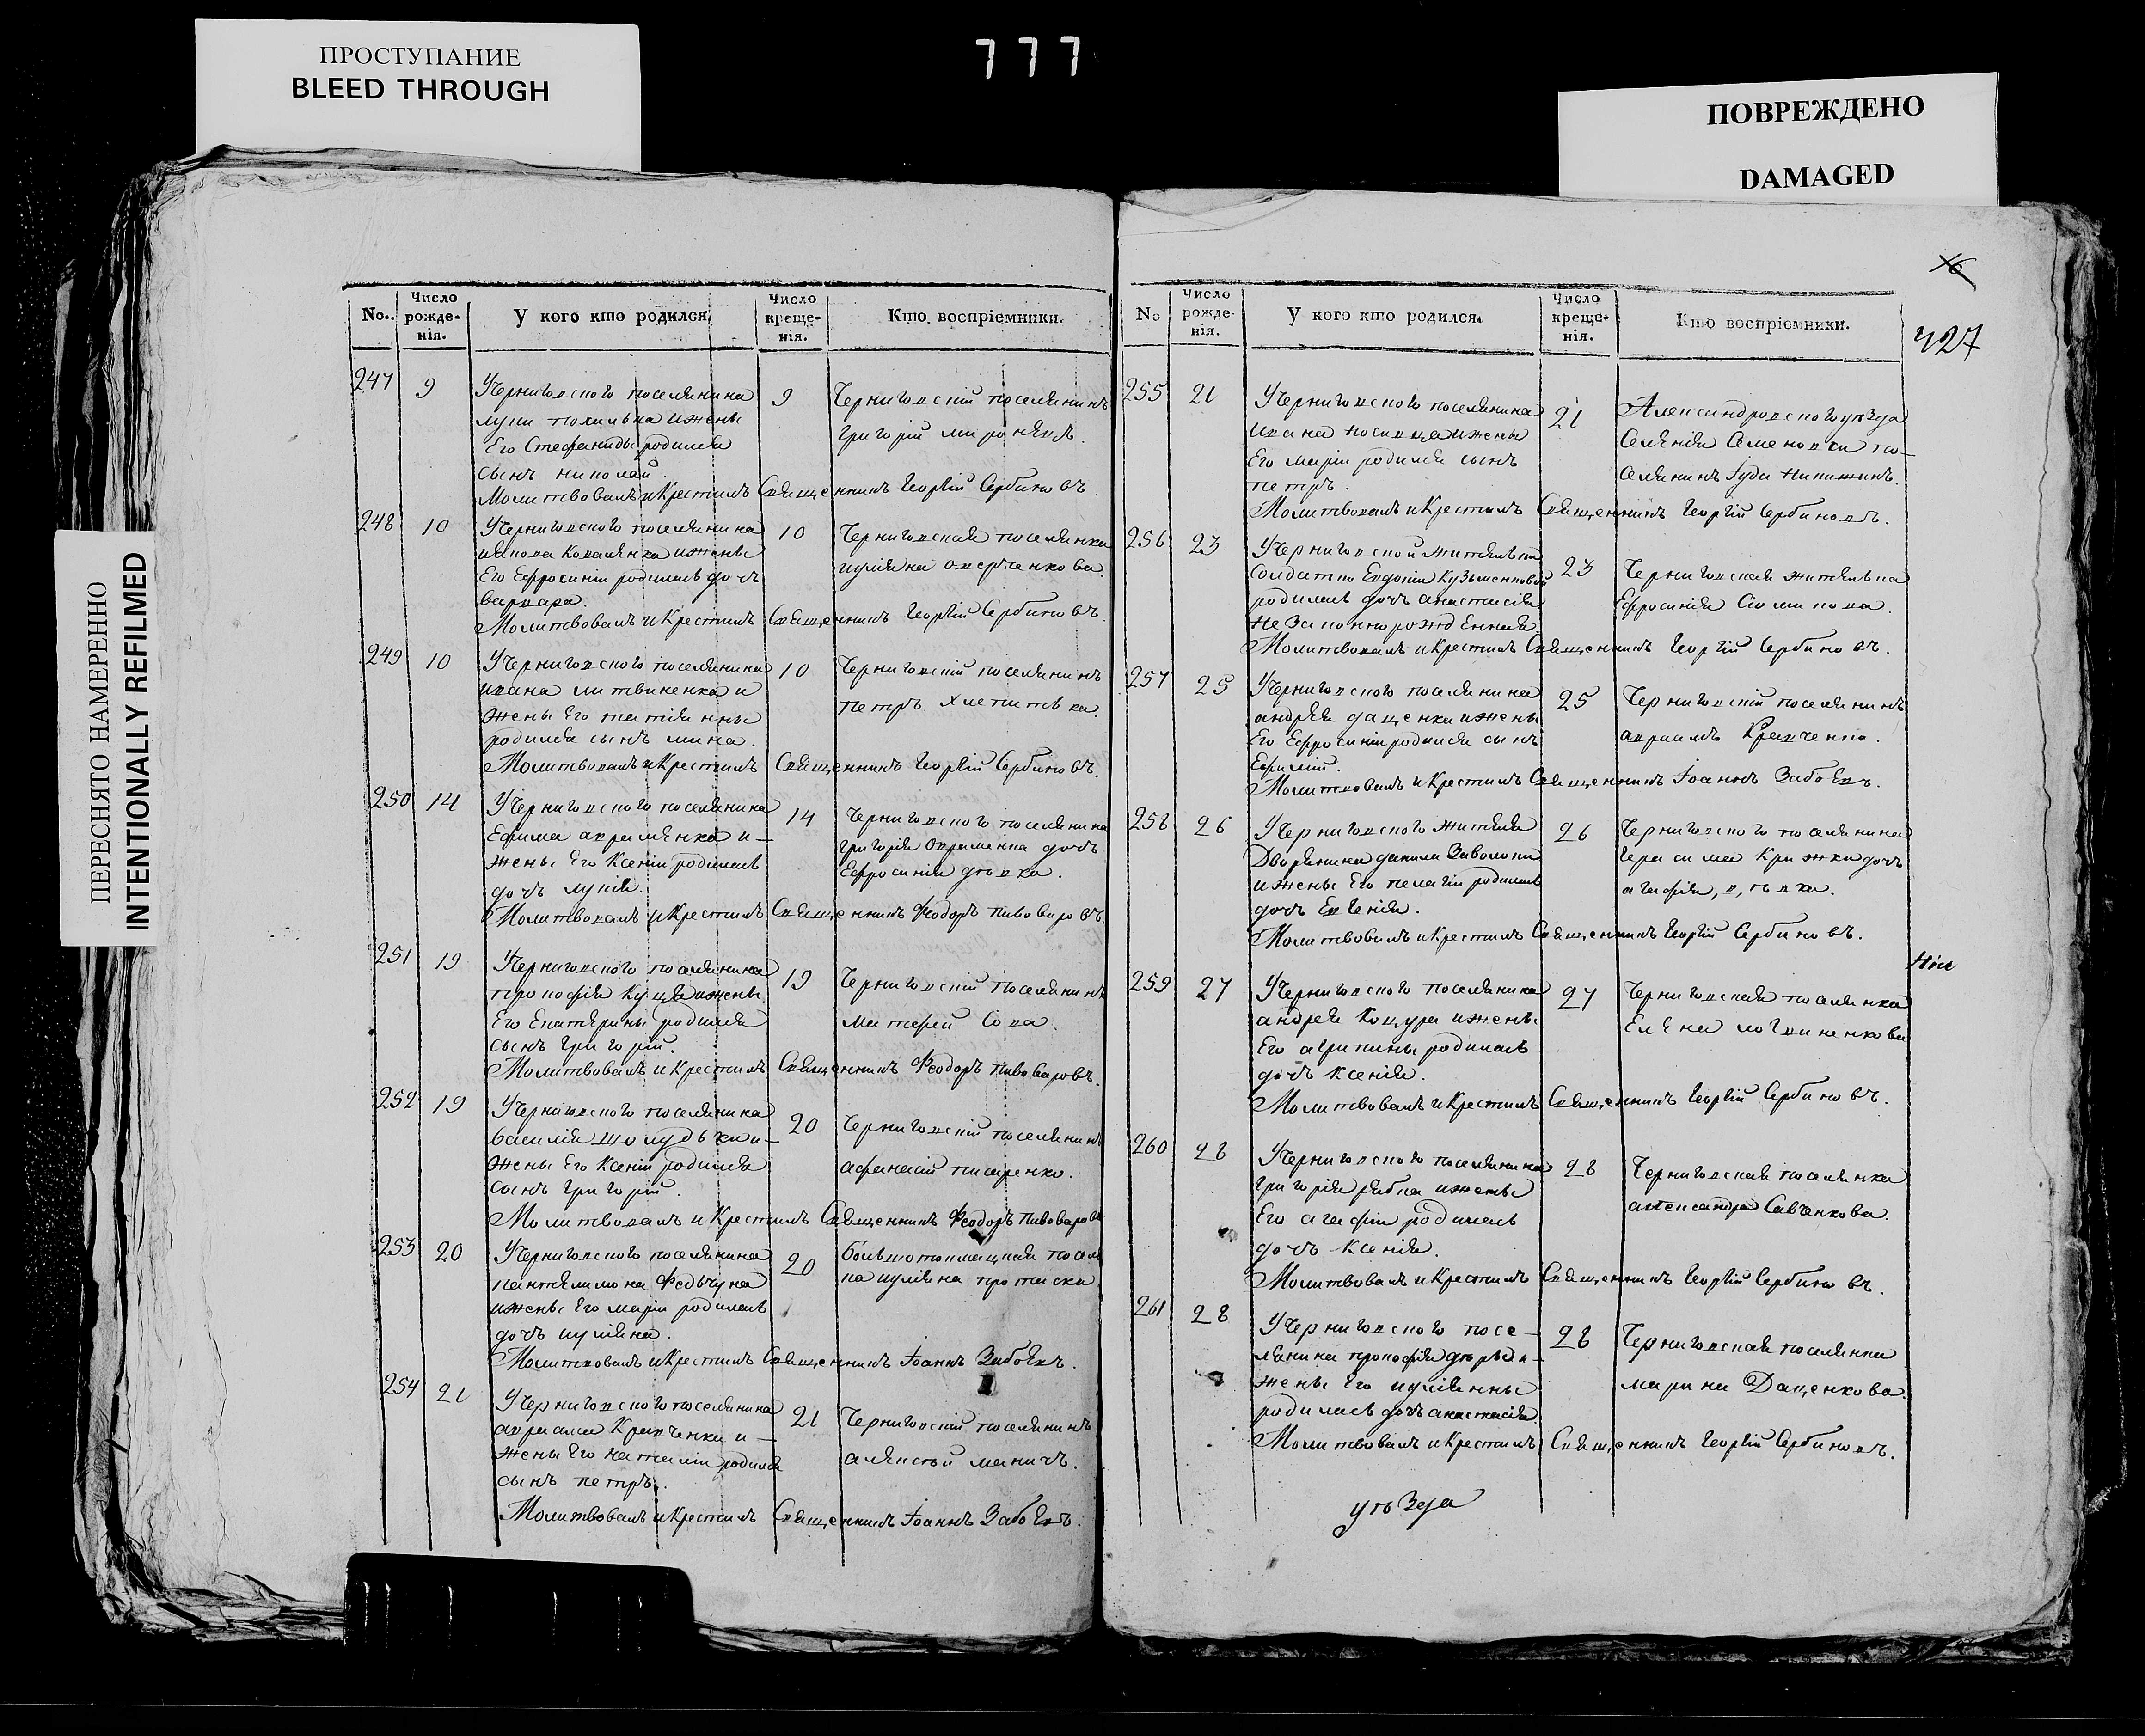 ПРОСТУПАНИЕ
BLEED THROUGH
777
ПОВРЕЖДЕНО
DAMAGED
ПЕРЕСНЯТО НАМЕРЕННО
INTENTIONALLY REFILMED
No.. Число рожденія. У кого кто родился. Число крещенія. Кто воспріемники.
247 9 У Черниговского поселянина 9 Черниговскій поселянинъ
луки и жены Григорій
Его Стефаниды родился
сынъ николай
Молитвовалъ и Крестилъ Священникъ Георгій Сербиновъ.
248 10 У Черниговского поселянина 10 Черниговская поселянка
якова Коваленка и жены иуліяна
Его Ефросиніи родилась дочь
варвара.
Молитвовалъ и Крестилъ Священникъ Георгій Сербиновъ.
249 10 У Черниговского поселянина 10 Черниговскій поселянинъ
ивана литвиненка и петръ
жены Его татіянны
родился сынъ мина.
Молитвовалъ и Крестилъ Священникъ Георгій Сербиновъ.
250 14 У Черниговского поселянина 14 Черниговского поселянина
Ефима авраменка и- Григорія дочь
жены Его Ксеніи родилась Ефросинія дѣвка.
дочь лукія.
Молитвовалъ и Крестилъ Священникъ Феодоръ пивоваровъ.
251 19 У Черниговского поселянина 19 Черниговскій поселянинъ
прокофія Куця и жены матфей Сова.
Его Екатерины родился
сынъ Григорій.
Молитвовалъ и Крестилъ Священникъ Феодоръ пивоваровъ.
252 19 У Черниговского поселянина 20 Черниговскій поселянинъ
василія шолудька и- афанасій писаренко.
жены Его Ксеніи родился
сынъ Григорій.
Молитвовалъ и Крестилъ Священникъ Феодоръ пивоваровъ
253 20 У Черниговского поселянина 20 большотокмацкая посел
пантелимона Федьчуна ка иуліяна
и жены Его маріи родилась
дочь иуліяна.
Молитвовалъ и Крестилъ Священникъ Іоаннъ Забоевъ.
254 21 У Черниговского поселянина 21 Черниговскій поселянинъ
авраама Кравченка и- алексѣй маничъ.
жены Его наталіи родился
сынъ петръ.
Молитвовалъ и Крестилъ Священникъ Іоаннъ Забоевъ.
16
427
No Число рожденія. У кого кто родился. Число крещенія. Кто воспріемники.
255 21 У Черниговского поселянина 21 Александровского уѣзда
ивана носивца и жены Селенія Семеновки по-
Его маріи родился сынъ селянинъ Іуда
петръ.
Молитвовалъ и Крестилъ Священникъ Георгій Сербиновъ.
256 23 У Черниговской жительки 23 Черниговская жителька
Солдатки Евдокіи Кузьменковой Ефросинія
родилась дочь анастасія
незаконнорожденная.
Молитвовалъ и Крестилъ Священникъ Георгій Сербиновъ.
257 25 У Черниговского поселянина 25 Черниговскій поселянинъ
андрея даценка и жены авраамъ Кравченко.
Его Ефросиніи родился сынъ
Ефимій.
Молитвовалъ и Крестилъ Священникъ Іоаннъ Забоевъ.
258 26 У Черниговского жителя 26 Черниговского поселянина
Дворянина данила Заволоки Герасима Крижки дочь
и жены Его пелагіи родилась агафія, дѣвка.
дочь Евгенія.
Молитвовалъ и Крестилъ Священникъ Георгій Сербиновъ.
259 27 У Черниговского поселянина 27 Черниговская поселянка
андрея Коцура и жены Елена логвиненкова
Его агрипины родилась
дочь Ксенія.
Молитвовалъ и Крестилъ Священникъ Георгій Сербиновъ.
260 28 У Черниговского поселянина 28 Черниговская поселянка
Григорія рябка и жены александра Савченкова.
Его агафіи родилась
дочь Ксенія.
Молитвовалъ и Крестилъ Священникъ Георгій Сербиновъ.
261 28 У Черниговского посе- 28 Черниговская поселянка
лянина прокофія и- марина Даценкова.
жены Его иуліянны
родилась дочь анастасія.
Молитвовалъ и Крестилъ Священникъ Георгій Сербиновъ.
уѣзда